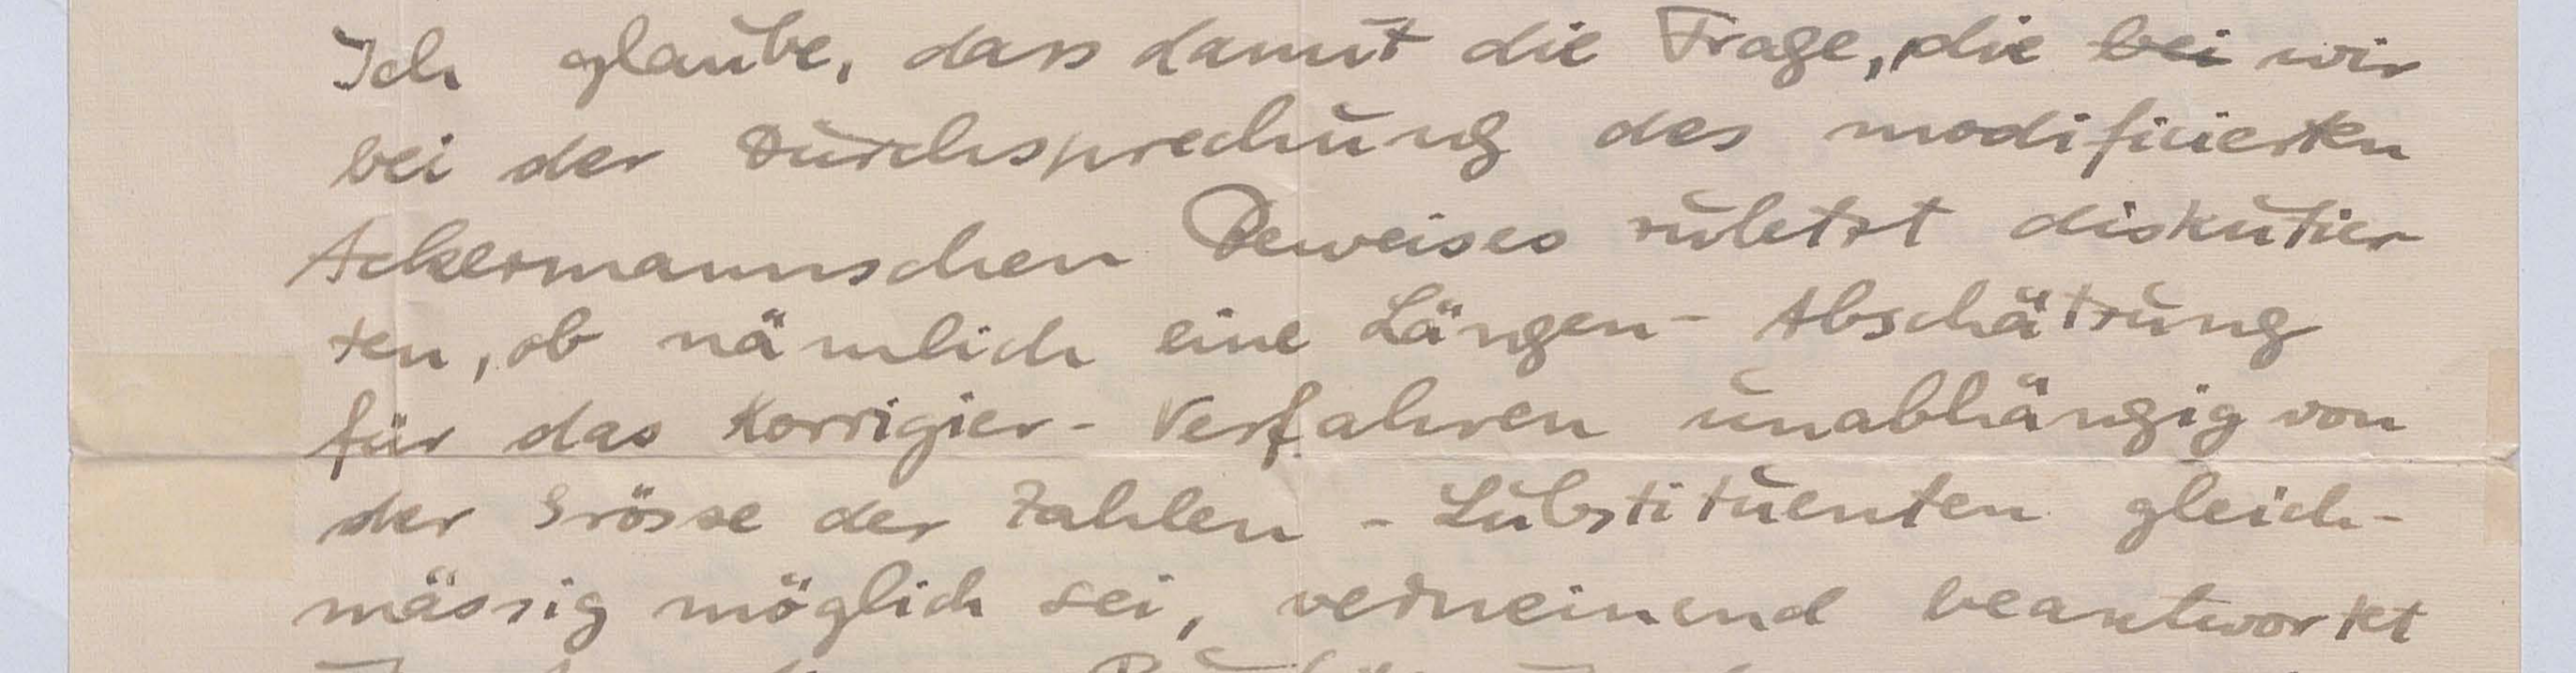 Ich glaube, dass damit die Frage, die ~~bei~~ wir
bei der Durchsprechung des modificierten
Ackermannschen Beweises zuletzt diskutier
ten, ob nämlich eine Längen-Abschätzung
für das Korrigier-Verfahren unabhängig von
der Grösse der Zahlen-Substituenten gleich-
mässig möglich sei, verneinend beantwortet